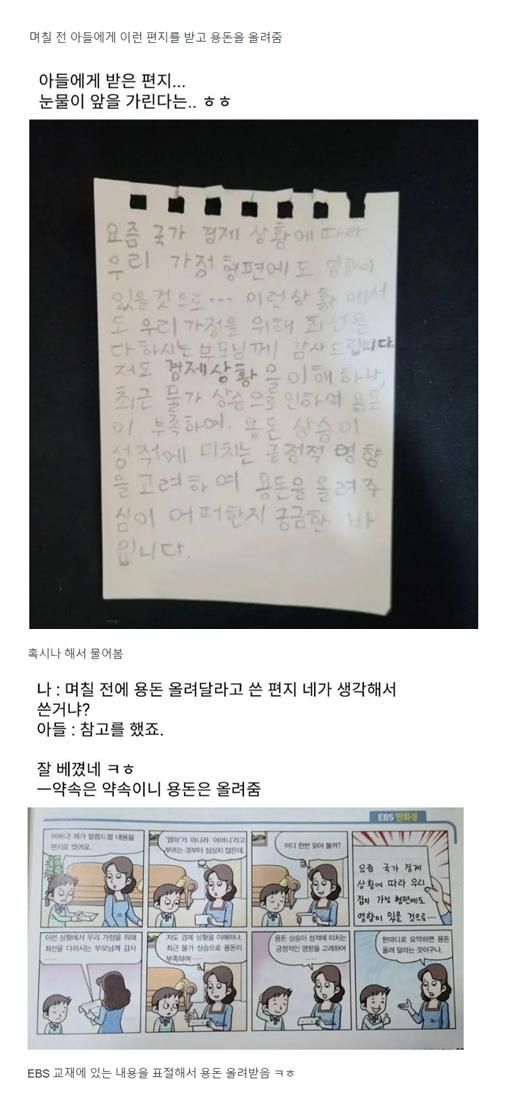 며칠 전 아들에게 이런 편지를 받고 용돈을 올려줌
아들에게 받은 편지...
눈물이 앞을 가린다는.. ㅎㅎ
요즘 국가 경제 상황에 따라
우리 가정 형편에도 영향이
있을 것으로... 이런 상황에서
도 우리 가정을 위해 최선을
다하시는 부모님께 감사드립니다.
저도 경제상황을 이해하나,
최근 물가 상승으로 인하여 용돈
이 부족하여. 용돈 상승이
성적에 미치는 긍정적 영향
을 고려하여 용돈을 올려주
심이 어떠한지 궁금한 바
입니다.
혹시나 해서 물어봄
나 : 며칠 전에 용돈 올려달라고 쓴 편지 네가 생각해서
쓴거냐?
아들 : 참고를 했죠.
잘 베꼈네 ㅋㅎ
ㅡ약속은 약속이니 용돈은 올려줌
EBS 만화경
어머니! 제가 말씀드릴 내용을
편지로 썼어요.
'엄마'가 아니라 '어머니'라고
부르는 것부터 심상치 않은데.
어디 한번 읽어 볼까?
요즘 국가 경제
상황에 따라 우리
집의 가정 형편에도
영향이 있을 것으로…
이런 상황에서 우리 가정을 위해
최선을 다하시는 부모님께 감사
……
저도 경제 상황을 이해하나,
최근 물가 상승으로 용돈이
부족하여……
용돈 상승이 성적에 미치는
긍정적인 영향을 고려하여
……
한마디로 요약하면 용돈
올려 달라는 것이구나.
EBS 교재에 있는 내용을 표절해서 용돈 올려받음 ㅋㅎ